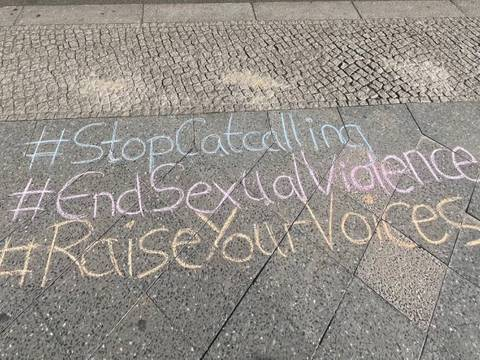 #StopCatcalling
#EndSexualViolence
#RaiseYourVoices